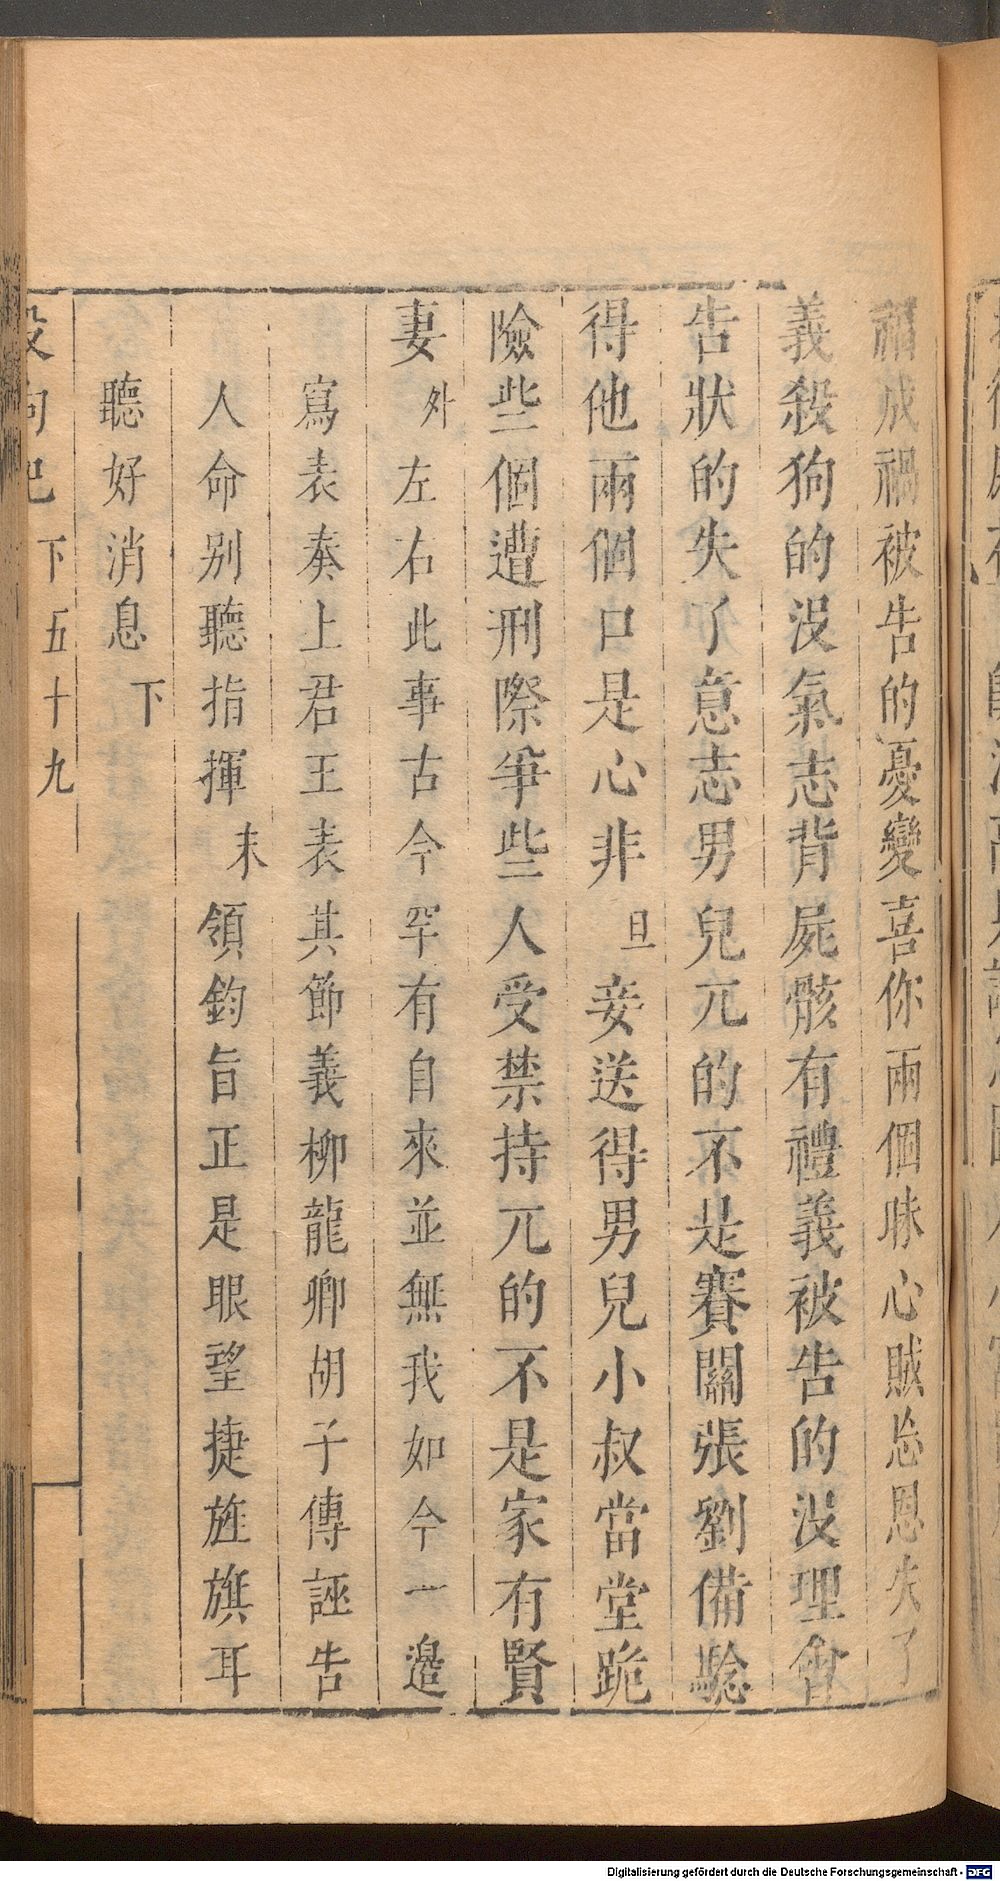 福成禍被告的憂變喜你兩個昧心賊忘恩失了
義殺狗的沒氣志背屍骸有禮義被告的沒理會
告狀的失了意志男兒兀的不是賽關張劉備騐
得他兩個口是心非旦妾送得男兒小叔當堂跪
險些個遭刑際爭些人受禁持兀的不是家有賢
妻外左右此事古今罕有自來並無我如今一邉
寫表奏上君王表其節義柳龍卿胡子傳誣告
人命别聽指揮末領鈞旨正是眼望捷旌旗耳
聽好消息下
殺狗記 下 五十九
Digitalisierung gefördert durch die Deutsche Forschungsgemeinschaft - DFG